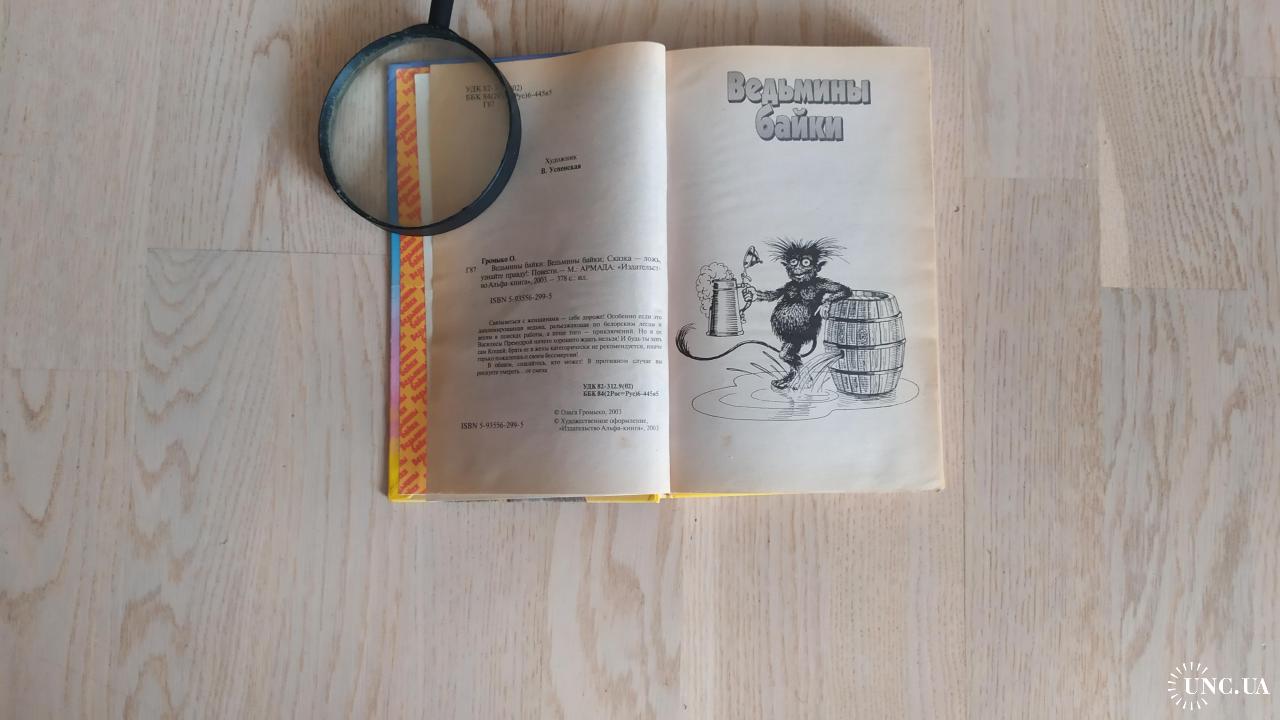 УДК 82-3 (02)
ББК 84(2Р Рус)6-445я5
Г87
Художник
В. Успенская
Громыко О.
Г87 Ведьмины байки: Ведьмины байки; Сказка — ложь,
узнайте правду!: Повести.— М.: АРМАДА: «Издательст-
во Альфа-книга», 2003.— 378 с.: ил.
ISBN 5-93556-299-5
Связываться с женщинами — себе дороже! Особенно если это
дипломированная ведьма, разъезжающая по белорским лесам и
весям в поисках работы, а пуще того — приключений. Но и от
Василисы Премудрой ничего хорошего ждать нельзя! И будь ты хоть
сам Кощей, брать ее в жены категорически не рекомендуется, иначе
горько пожалеешь о своем бессмертии!
В общем, спасайтесь, кто может! В противном случае вы
рискуете умереть... от смеха
УДК 82-312.9(02)
ББК 84(2Рос=Рус)6-445я5
© Ольга Громыко, 2003
© Художественное оформление,
ISBN 5-93556-299-5 «Издательство Альфа-книга», 2003
Ведьмины
байки
UNC.UA